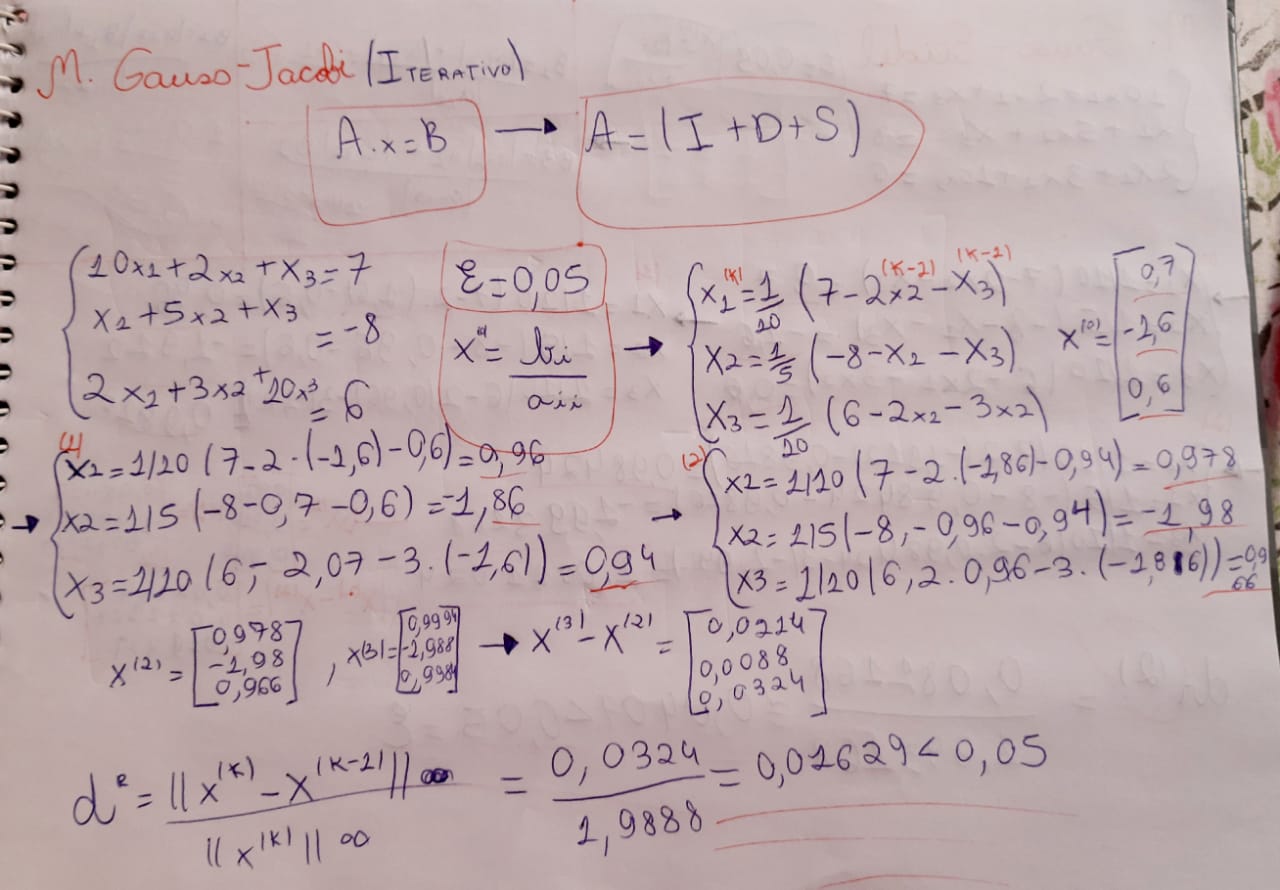 M. Gauss-Jacobi (ITERATIVO)
A.x=B → A=(I+D+S)
10x1+2x2+x3=7
x1+5x2+x3 = -8
2x1+3x2+10x3 = 6
ε=0,05
x⁽⁰⁾= bi/aii
→ x1⁽ᴷ⁾=1/10 (7-2x2⁽ᴷ⁻¹⁾-x3⁽ᴷ⁻¹⁾)
x2=1/5 (-8-x1-x3)
x3=1/10 (6-2x1-3x2)
x⁽⁰⁾= [0,7
-1,6
0,6]
(1)
→ x1=1/10 (7-2·(-1,6)-0,6)=0,96
x2=1/5 (-8-0,7-0,6)=-1,86
x3=1/10 (6,-2,07-3.(-1,6))=0,94
(2)
→ x1=1/10 (7-2.(-1,86)-0,94)=0,978
x2=1/5(-8,-0,96-0,94)=-1,98
x3=1/10(6,2.0,96-3.(-1,86))=0,966
x⁽²⁾= [0,978
-1,98
0,966]
, x⁽³⁾= [0,9994
-1,988
0,9984]
→ x⁽³⁾-x⁽²⁾ = [0,0214
0,0088
0,0324]
dᵉ= ||x⁽ᴷ⁾-x⁽ᴷ⁻¹⁾||∞ / ||x⁽ᴷ⁾||∞ = 0,0324/1,9888 = 0,01629<0,05